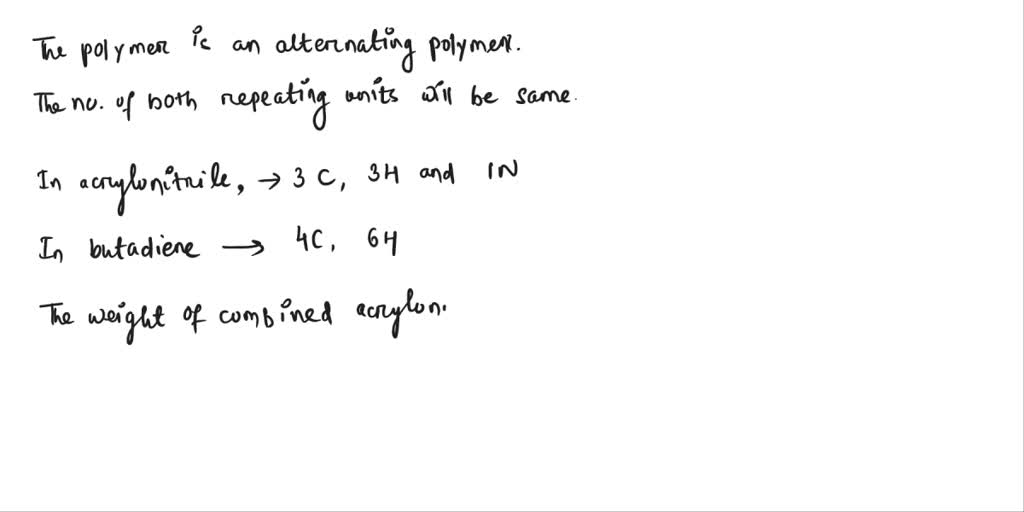 The polymer is an alternating polymer.
The no. of both repeating units will be same.
In acrylonitrile, → 3 C, 3H and 1N
In butadiene → 4C, 6H
The weight of combined acrylon.